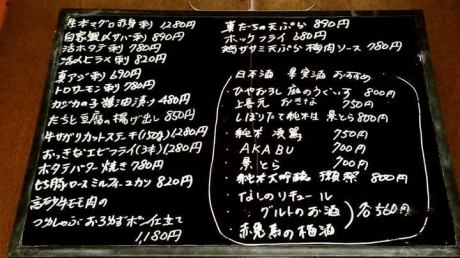 生本マグロ赤身(刺) 1280円
自家製〆サバ(刺) 890円
活ホタテ(刺) 780円
活〆ひらめ(刺) 820円
真アジ(刺) 690円
トロサーモン(刺) 780円
カジカの子醤油漬け 480円
たちと豆腐の揚げ出し 850円
牛サガリカットステーキ(150g) 1280円
おっきなエビフライ(3本) 1280円
ホタテバター焼き 780円
豚ロースミルフィーユカツ 820円
牛モモ肉の
つめしゃぶ おろぽずポン仕立て
1,180円
真たちの天ぷら 890円
ホッケフライ 680円
鶏ササミ天ぷら 梅肉ソース 780円
日本酒 果実酒 おすすめ
ひやおろし 庭のうぐいす 800円
上喜元 おきな 750円
しぼりたて純米生 景とら 800円
純米 750円
AKABU 700円
景とら 700円
純米大吟醸 獺祭 800円
なしのリキュール
グルトのお酒
各560円
赤兎馬の梅酒